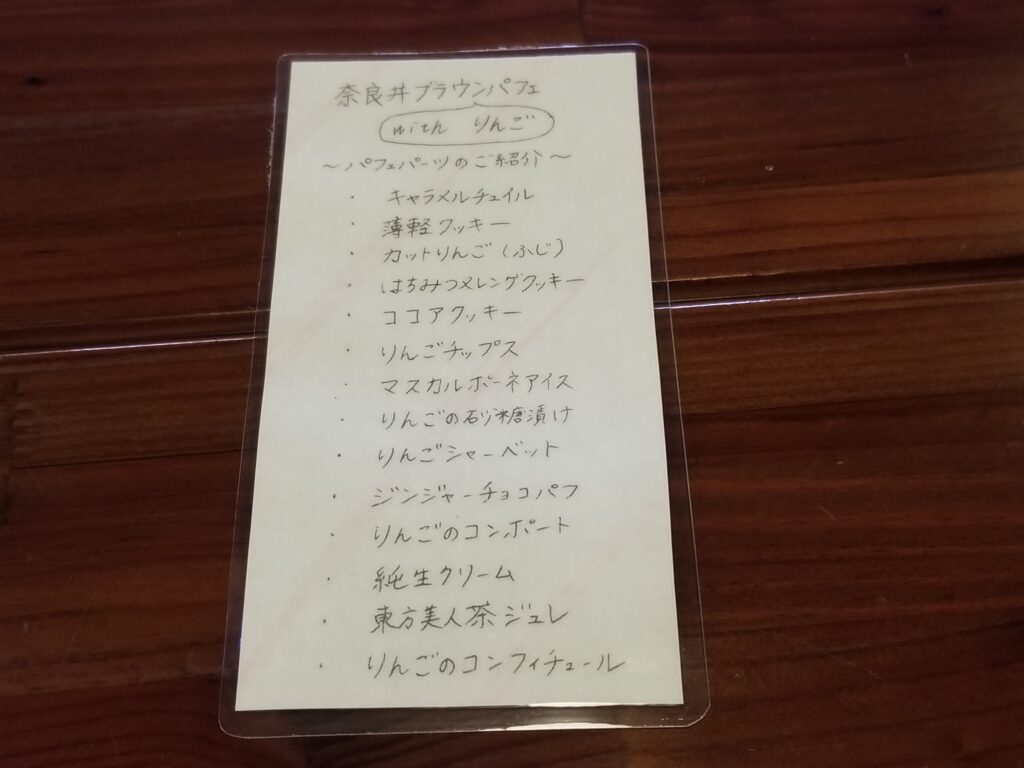 奈良井ブラウンパフェ
with りんご
～パフェパーツのご紹介～
・ キャラメルチュイル
・ 薄軽クッキー
・ カットりんご(ふじ)
・ はちみつメレンゲクッキー
・ ココアクッキー
・ りんごチップス
・ マスカルポーネアイス
・ りんごの砂糖漬け
・ りんごシャーベット
・ ジンジャーチョコパフ
・ りんごのコンポート
・ 純生クリーム
・ 東方美人茶ジュレ
・ りんごのコンフィチュール